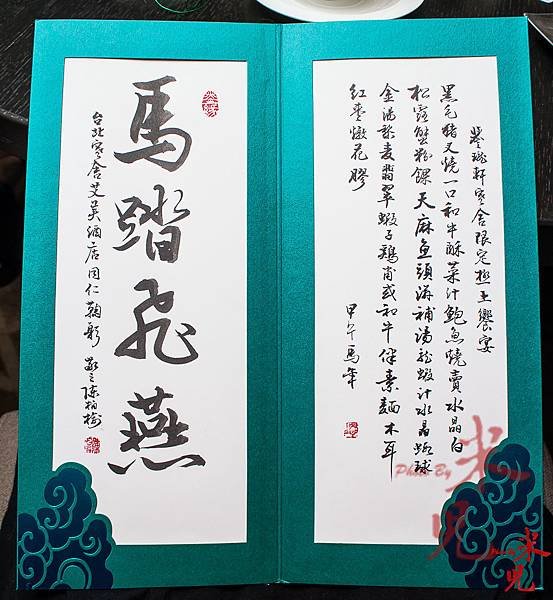 譽瓏軒寒舍限定極上饗宴
黑毛豬叉燒一口和牛酥菜汁鮑魚燒賣水晶白
松露蟹粉餜天麻魚頭滋補湯龍蝦汁水晶蝦球
金湯藜麥翡翠蝦子鷄甫或和牛伴素麵木耳
紅棗燉花膠
甲午馬年
馬踏飛燕
台北寒舍艾美酒店同仁鞠躬
陳柏
Photo By
米兒
米兒